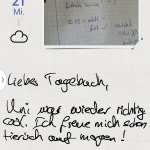 21
Mi.
Liebes Tagebuch,
Uni war wieder richtig
cool. Ich freue mich schon
tierisch auf morgen!